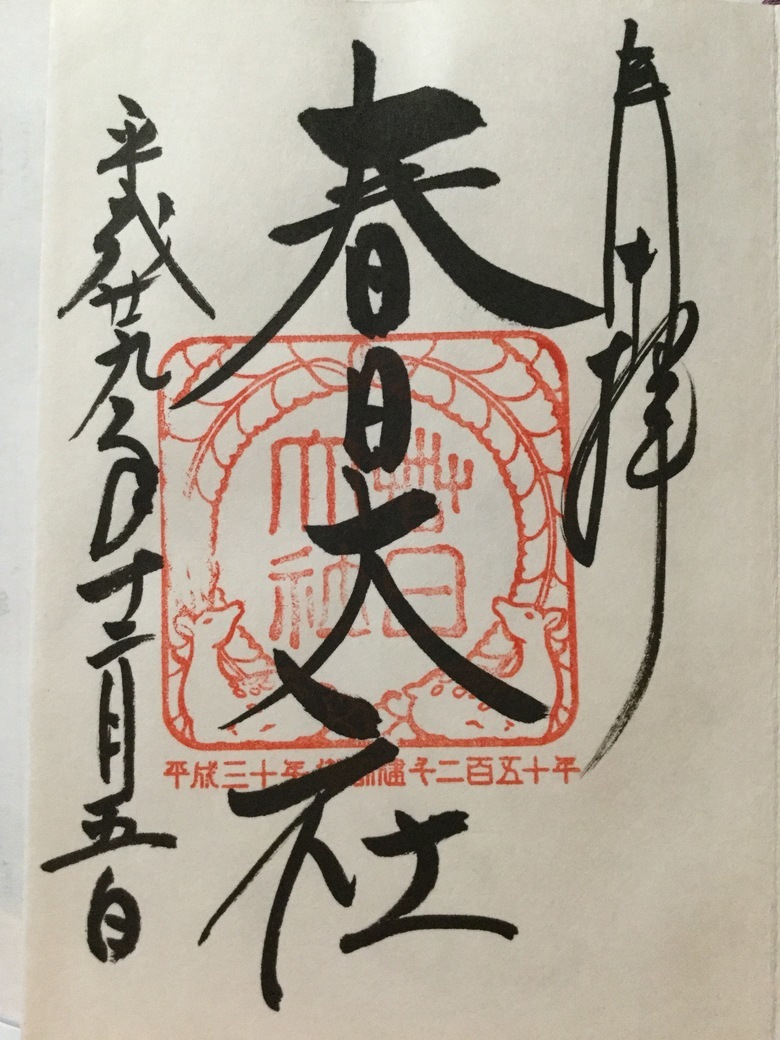 奉拝
春日大社
平成廿九年十二月五日
春日
大社
平成三十年御創建千二百五十年